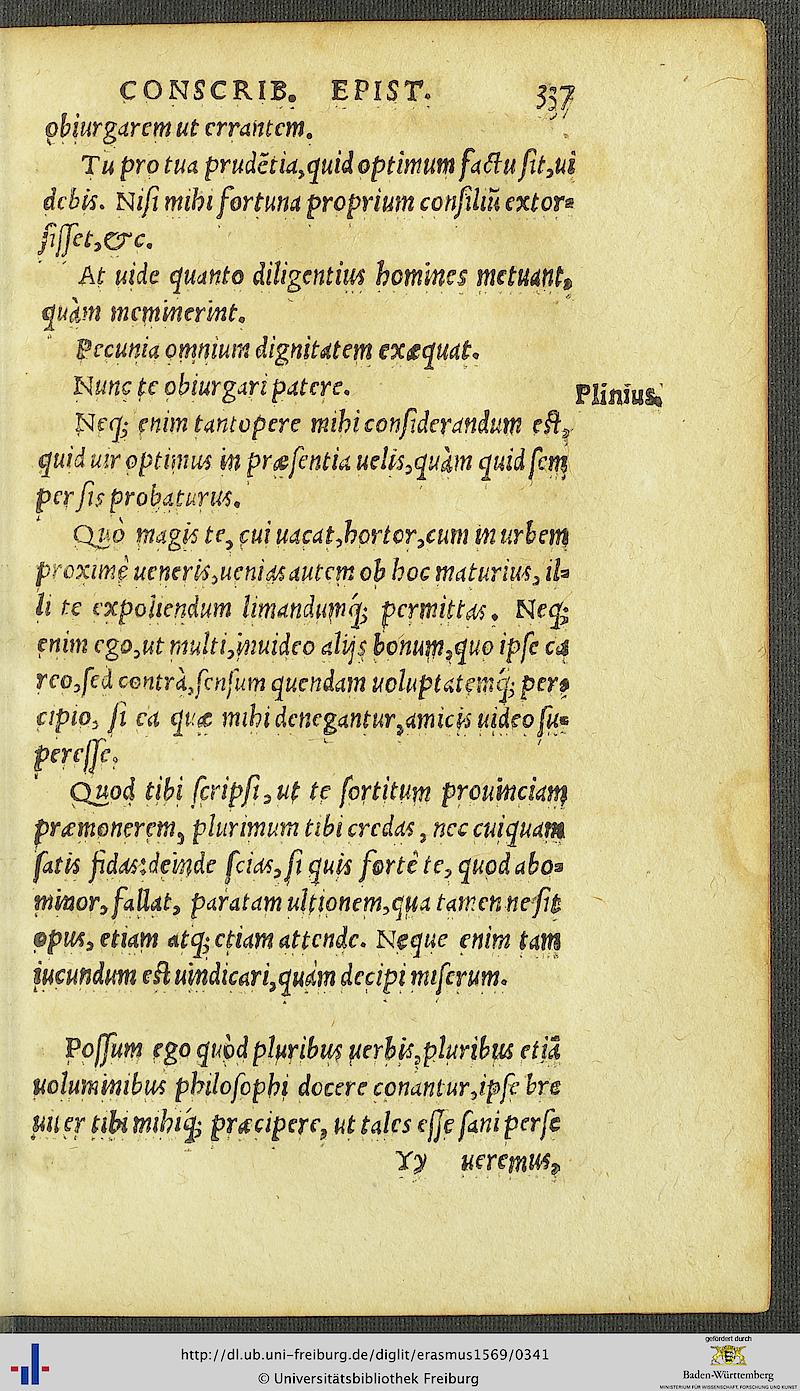 CONSCRIB. EPIST. 337
obiurgarem ut errantem.
Tu pro tua prudẽtia, quid optimum factu sit, ui
debis. Nisi mihi fortuna proprium consiliũ extor=
sisset, &c.
At uide quanto diligentius homines metuant,
quàm meminerint.
Pecunia omnium dignitatem exæquat.
Nunc te obiurgari patere.
Plinius.
Neq; enim tantopere mihi considerandum est,
quid uir optimus in præsentia uelis, quàm quid sem
per sis probaturus.
Quò magis te, cui uacat, hortor, cum in urbem
proximè ueneris, uenias autem ob hoc maturius, il=
li te expoliendum limandumq́; permittas. Neq;
enim ego, ut multi, inuideo alijs bonum, quo ipse ca
reo, sed contrà, sensum quendam uoluptatemq́; per=
cipio, si ea quæ mihi denegantur, amicis uideo su=
peresse.
Quod tibi scripsi, ut te sortitum prouinciam
præmonerem, plurimum tibi credas, nec cuiquam
satis fidas: deinde scias, si quis fortè te, quod abo=
minor, fallat, paratam ultionem, qua tamen ne sit
opus, etiam atq; etiam attende. Neque enim tam
iucundum est uindicari, quàm decipi miserum.
Possum ego quòd pluribus uerbis, pluribus etiã
uoluminibus philosophi docere conantur, ipse bre
uiter tibi mihiq́; præcipere, ut tales esse sani perse
Yy ueremus,
http://dl.ub.uni-freiburg.de/diglit/erasmus1569/0341
© Universitätsbibliothek Freiburg
gefördert durch
Baden-Württemberg
MINISTERIUM FÜR WISSENSCHAFT, FORSCHUNG UND KUNST